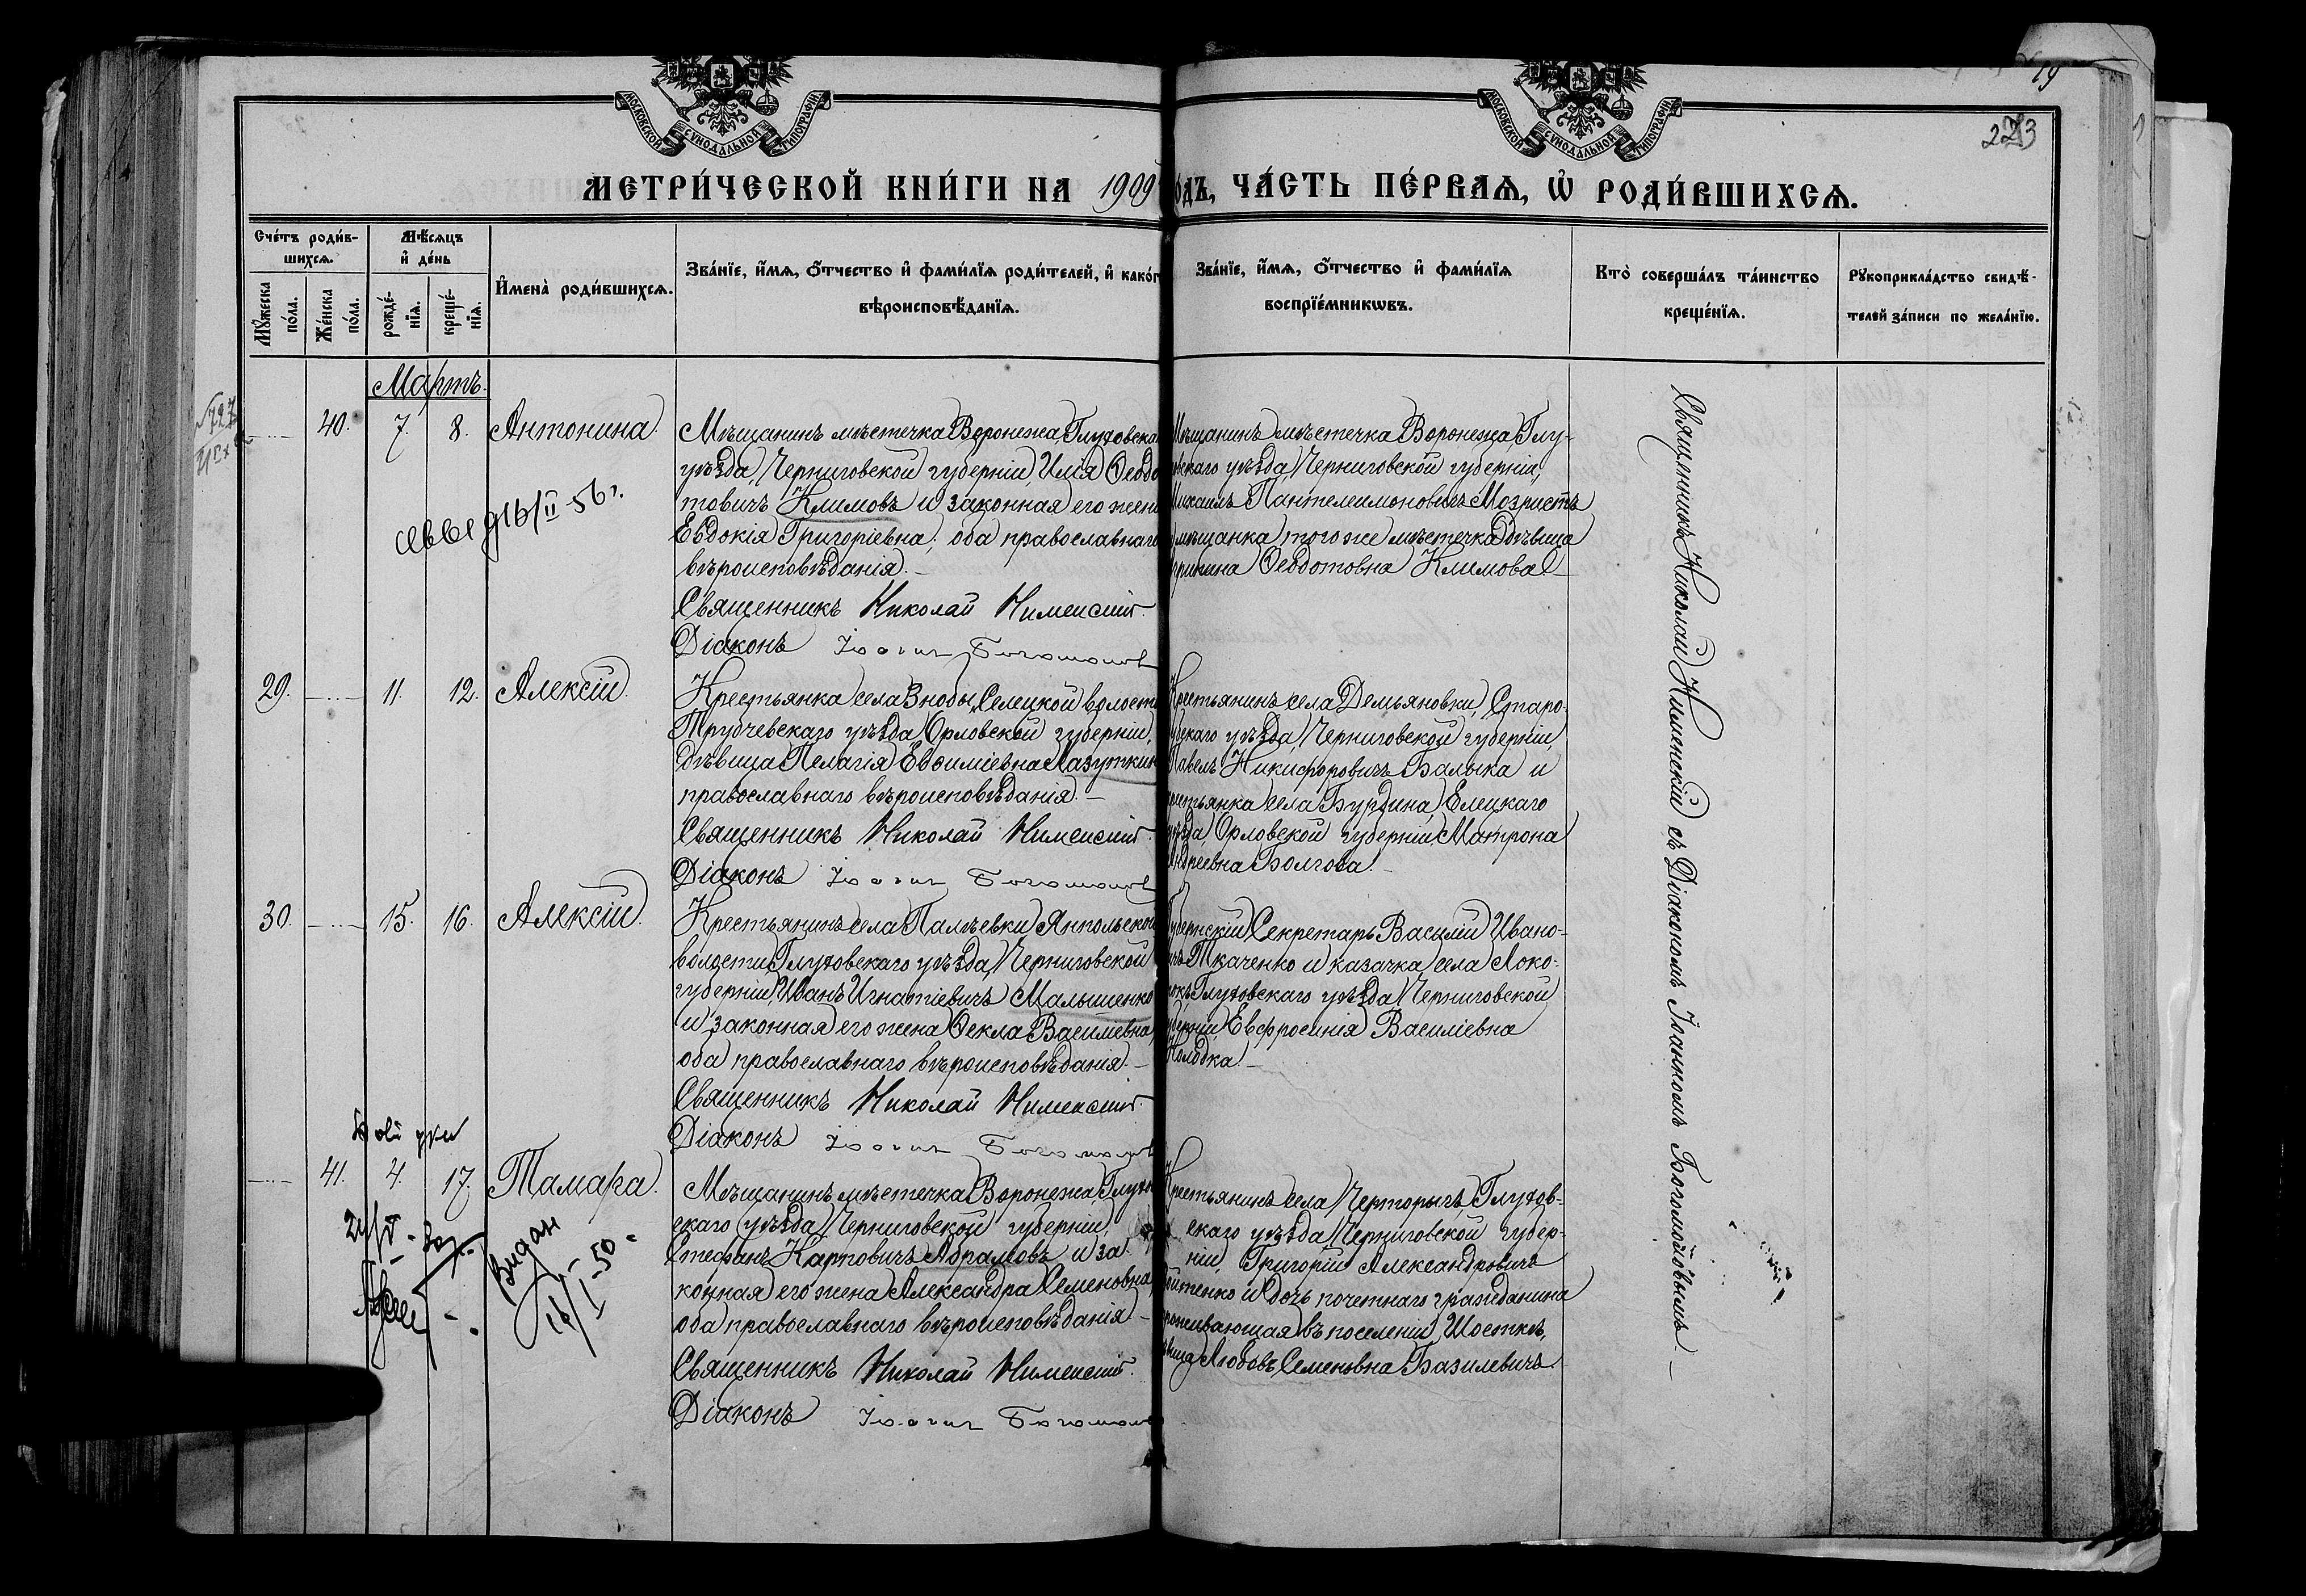 МОСКОВСКОЙ СУНОДАЛЬНОЙ ТИПОГРАФІИ
МОСКОВСКОЙ СУНОДАЛЬНОЙ ТИПОГРАФІИ
19
МЕТРИ́ЧЕСКОЙ КНИ́ГИ НА 1909
одъ, ЧА́СТЬ ПЕ́РВАѦ, Ѡ҆ РОДИ́ВШИХСѦ.
Сче́тъ роди́в-
шихсѧ.
Мꙋ́жеска по́ла.
Же́нска по́ла.
Мѣ́сѧцъ
и҆ де́нь
рожде́-
нїѧ.
креще́-
нїѧ.
И҆мена̀ роди́вшихсѧ.
Зва́нїе, и҆́мѧ, ѻ҆́тчество и҆ фами́лїѧ роди́телей, и҆ како́г
вѣроисповѣ́данїѧ.
Зва́нїе, и҆́мѧ, ѻ҆́тчество и҆ фами́лїѧ
воспрїе́мникѡвъ.
Кто̀ соверша́лъ та́инство
креще́нїѧ.
Рꙋкоприкла́дство свидѣ́-
телей за́писи по жела́нїю.
Мартъ.
40. 7. 8. Антонина.
Мѣщанинъ мѣстечка Воронежа, Глуховска
уѣзда, Черниговской губерніи, Илія Ѳеодо
товичъ Климовъ и законная его жена
Евдокія Григоріевна, оба православнаго
вѣроисповѣданія.–
Священникъ Николай Нименскій.
Діаконъ Іоаннъ Богомолов
Мѣщанинъ мѣстечка Воронежа, Глу-
вскаго уѣзда, Черниговской губерніи,
Михаилъ Пантелеимоновичъ Мозристъ
мѣщанка того же мѣстечка дѣвица
Ѳеодотовна Климова.–
16/II-56г.
29. 11. 12. Алексій.
Крестьянка села Зноби, Селецкой волости
Трубчевскаго уѣзда, Орловской губерніи,
дѣвица Пелагія Евѳиміевна Лазуткин
православнаго вѣроисповѣданія.–
Священникъ Николай Нименскій.
Діаконъ Іоаннъ Богомолов
Крестьянинъ села Демьяновки, Старо-
бскаго уѣзда, Черниговской губерніи,
Павелъ Никифоровичъ Балыка и
рестьянка села Бурдина, Елецкаго
уѣзда, Орловской губерніи, Матрона
Андреевна Болгова.–
30. 15. 16. Алексій.
Крестьянинъ села Палѣевки, Янпольской
волости, Глуховскаго уѣзда, Черниговской
губерніи, Иванъ Игнатіевичъ Малышенко
и законная его жена Ѳекла Василіевна,
оба православнаго вѣроисповѣданія.–
Священникъ Николай Нименскій.
Діаконъ Іоаннъ Богомолов
Губернскій Секретарь Василій Ивано-
чъ Ткаченко и казачка села Локо-
токъ, Глуховскаго уѣзда, Черниговской
губерніи, Евфросинія Василіевна
Колодка.–
41. 4. 17. Тамара.
Мѣщанинъ мѣстечка Воронежа, Глухо
скаго уѣзда, Черниговской губерніи,
Стефанъ Карповичъ Абрамовъ и за-
конная его жена Александра Семеновна,
оба православнаго вѣроисповѣданія–
Священникъ Николай Нименскій.
Діаконъ Іоаннъ Богомолов
Крестьянинъ села Черторыгъ, Глухов-
скаго уѣзда, Черниговской губер-
ніи, Григорій Александровичъ
йтенко и дочь почетнаго гражданина
проживающая въ поселеніи Шосткѣ,
вица Любовь Семеновна Базилевичъ.
Видан
16/I-50-
Священникъ Николай Нименскій съ Діакономъ Іоанномъ Богомоловымъ.–